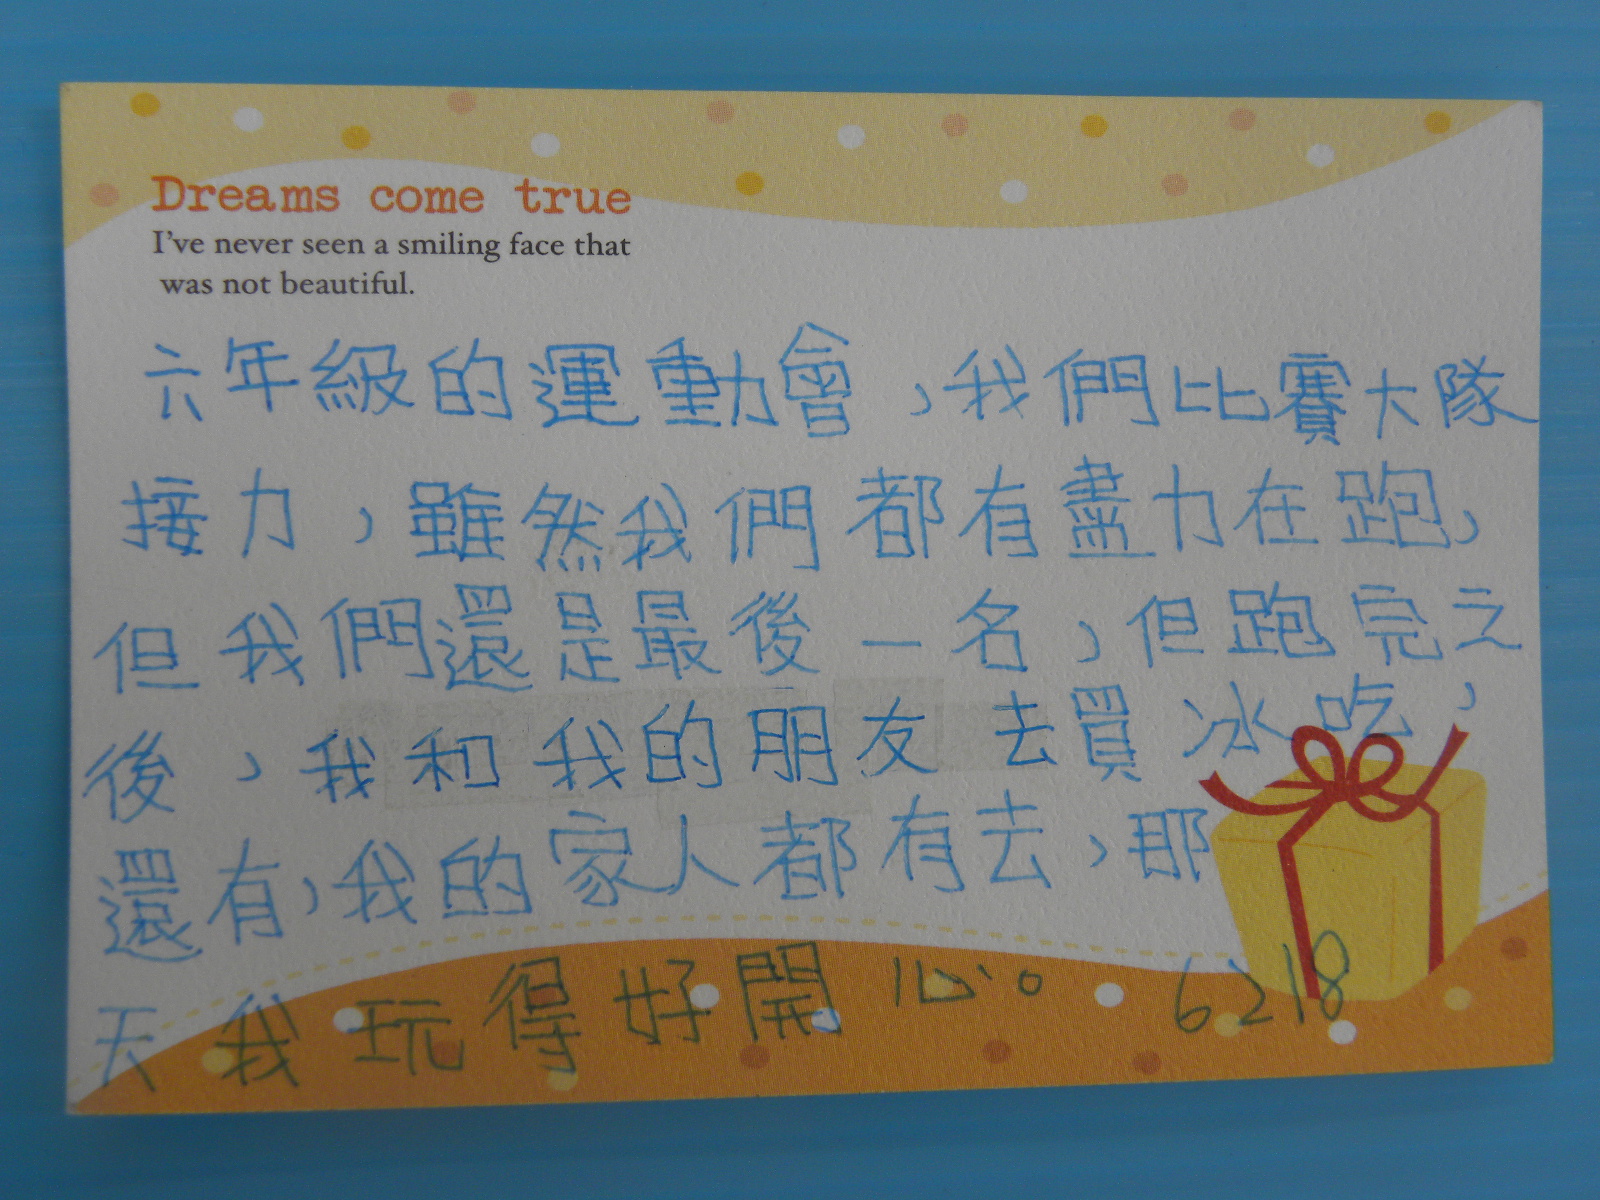 Dreams come true
I've never seen a smiling face that
was not beautiful.
六年級的運動會，我們比賽大隊
接力，雖然我們都有盡力在跑，
但我們還是最後一名，但跑完之
後，我和我的朋友去買冰吃，
還有，我的家人都有去，那
天我玩得好開心。 6218